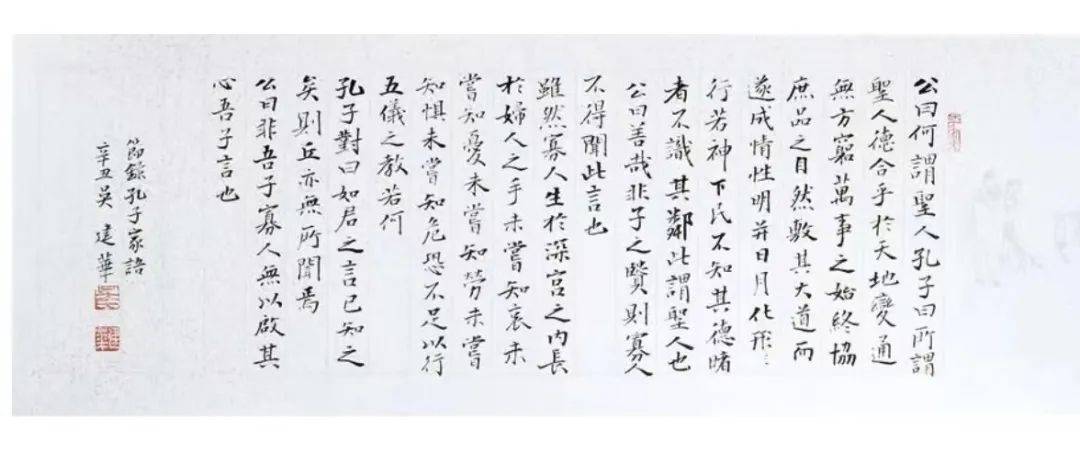 公曰何謂聖人孔子曰所謂
聖人德合乎於天地變通
無方窮萬事之始終協
庶品之自然敷其大道而
遂成情性明并日月化形:
行若神下民不知其德睹
者不識其鄰此謂聖人也
公曰善哉非子之賢則寡人
不得聞此言也
雖然寡人生於深宮之内長
於婦人之手未嘗知哀未
嘗知憂未嘗知勞未嘗
知懼未嘗知危恐不足以行
五儀之教若何
孔子對曰如君之言已知之
矣則丘亦無所聞焉
公曰非吾子寡人無以啟其
心吾子言也
節錄孔子家語
辛丑吳建華